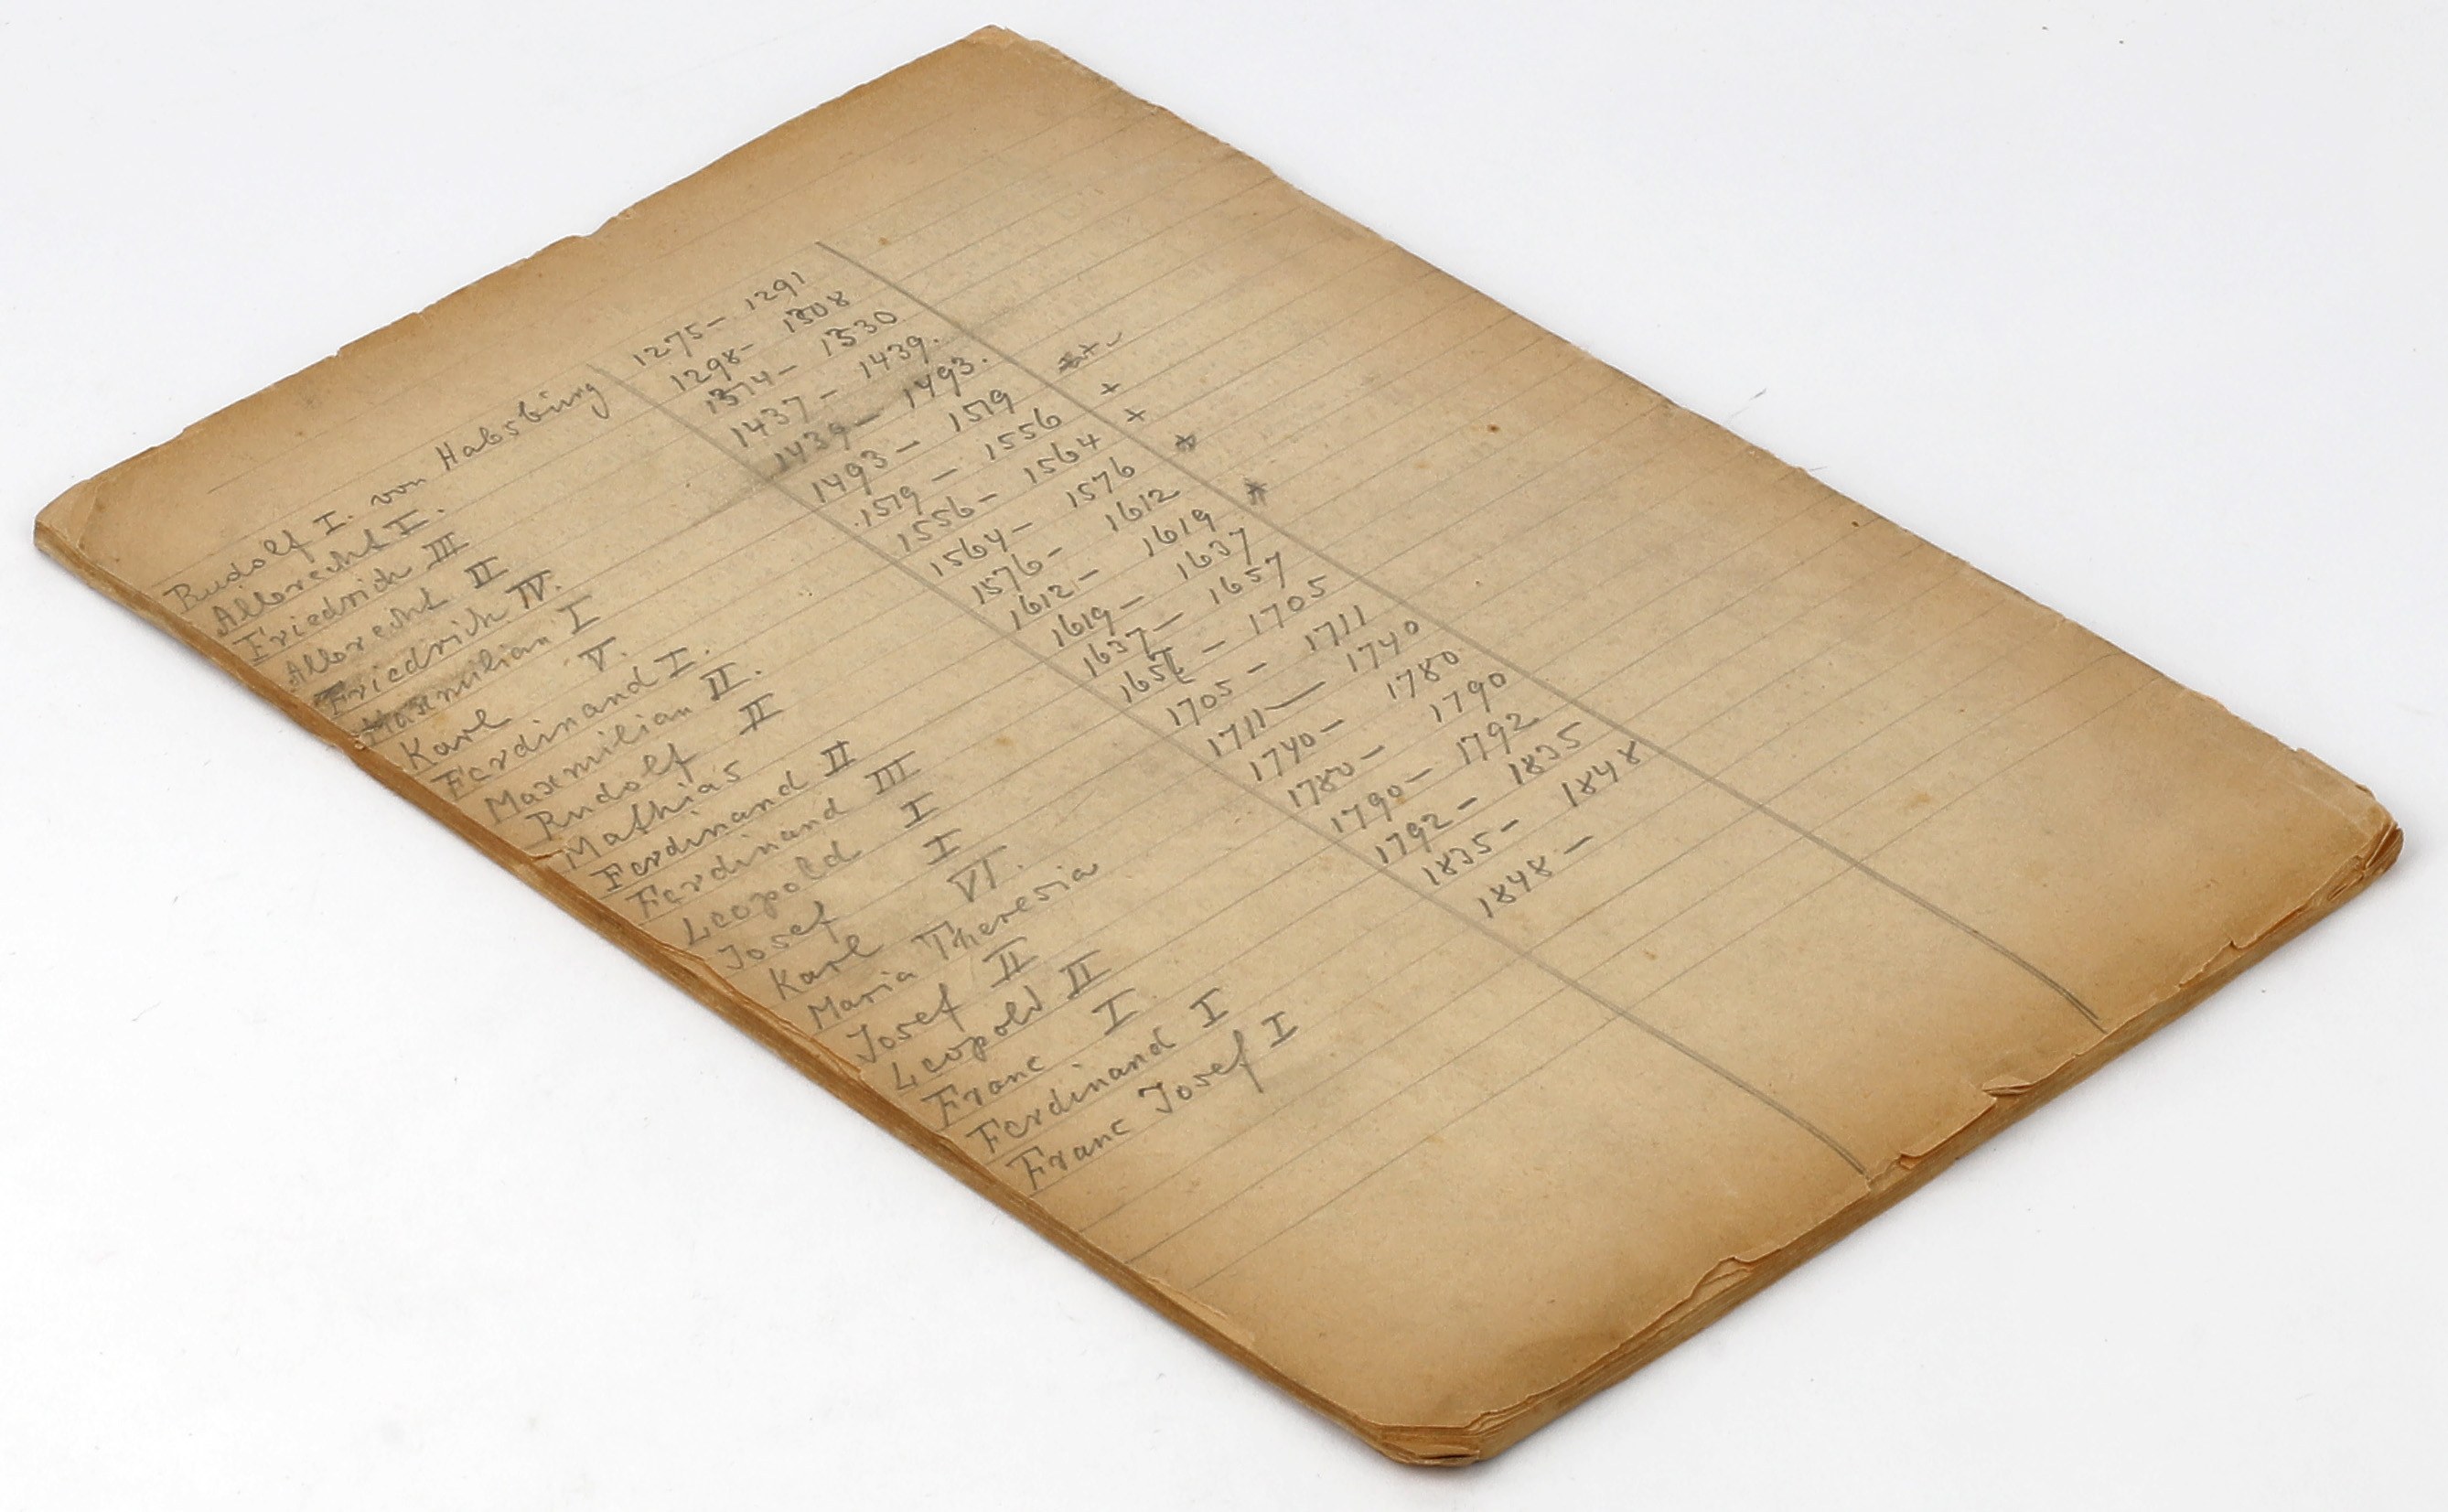 Rudolf I. von Habsburg 1275 – 1291
Albrecht I. 1298 – 1308
Friedrich III 1314 – 1330
Albrecht II 1437 – 1439.
Friedrich IV. 1439 – 1493.
Maxmilian I 1493 – 1519
Karl V. 1519 – 1556 +
Ferdinand I. 1556 – 1564 +
Maxmilian II. 1564 – 1576 +
Rudolf II 1576 – 1612
Mathias 1612 – 1619 +
Ferdinand II 1619 – 1637
Ferdinand III 1637 – 1657
Leopold I – 1705
Josef I 1705 – 1711
Karl VI. 1711 – 1740
Maria Theresia 1740 – 1780
Josef II 1780 – 1790
Leopold II 1790 – 1792
Franc I 1792 – 1835
Ferdinand I 1835 – 1848
Franc Josef I 1848 –